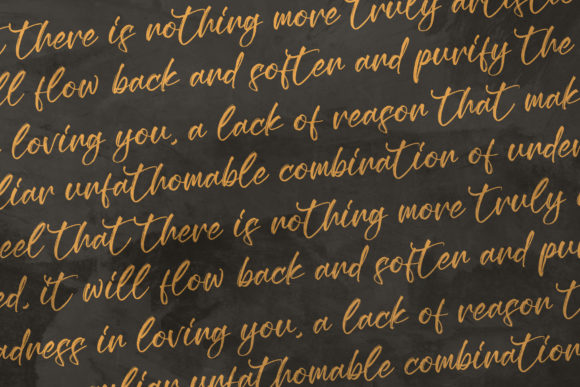 t there is nothing more truly artistic
ll flow back and soften and purify the
loving you, a lack of reason that mak
liar unfathomable combination of under
eel that there is nothing more truly
ed, it will flow back and soften and pu
adness in loving you, a lack of reason t
uliar unfathomable combination